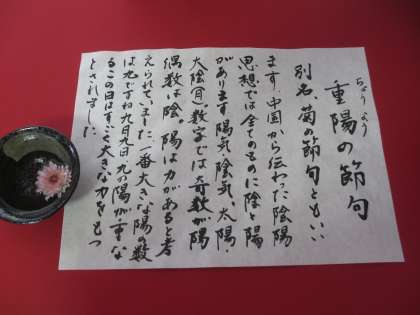 ちょうよう
重陽の節句
別名、菊の節句ともいい
ます。中国から伝わった陰陽
思想では全てのものに陰と陽
があります 陽気 陰気、太陽・
太陰(月)数字では奇数が陽
偶数は陰、陽は力があると考
えられていました、一番大きな陽の数
は九ですね 九月九日 九の陽が重な
るこの日はすごく大きな力をもつ
とされました